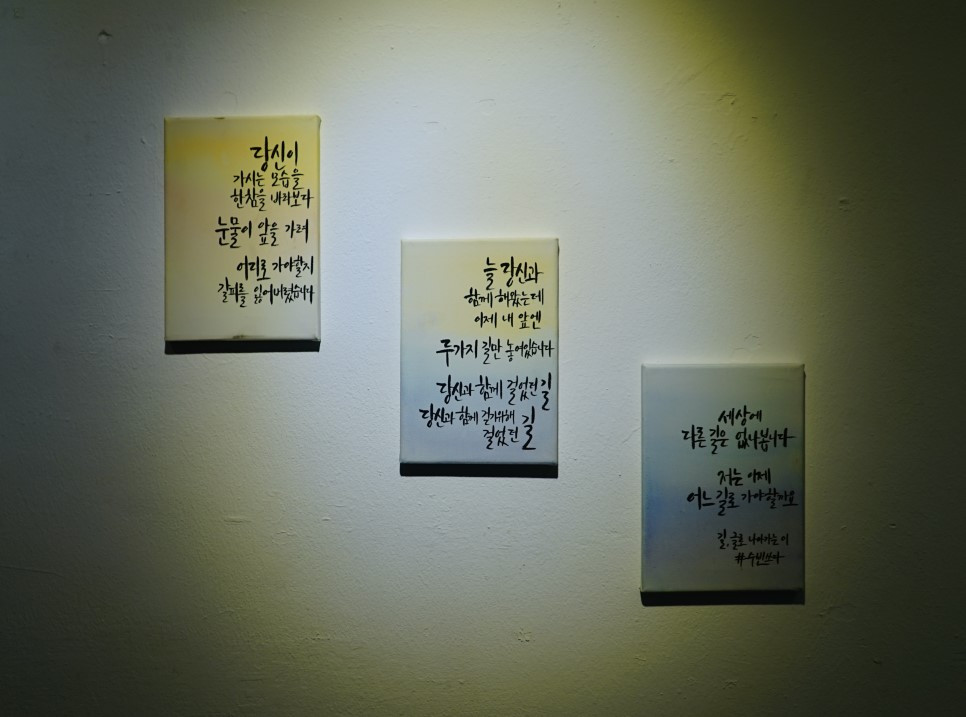 당신이
가시는 모습을
한참을 바라보다
눈물이 앞을 가려
어디로 가야할지
갈피를 잃어버렸습니다
늘 당신과
함께 해왔는데
이제 내 앞엔
두가지 길만 놓여있습니다
당신과 함께 걸었던 길
당신과 함께 걷기위해
걸었던 길
세상에
다른 길은 없나봅니다
저는 이제
어느 길로 가야할까요
길, 글로 나아가는 이